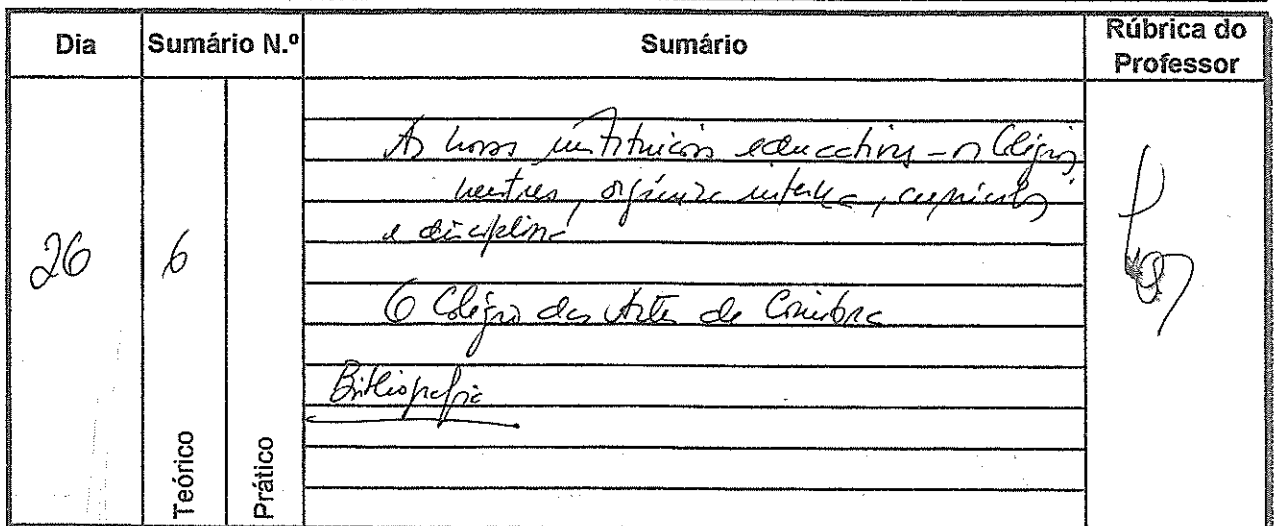 Dia Sumário N.º Sumário Rúbrica do Professor
As novas instituições educativas - os Colégios,
mestres, orgânica interna, currículos
e disciplina
26 6
O Colégio das Artes de Coimbra
Bibliografia
Teórico Prático